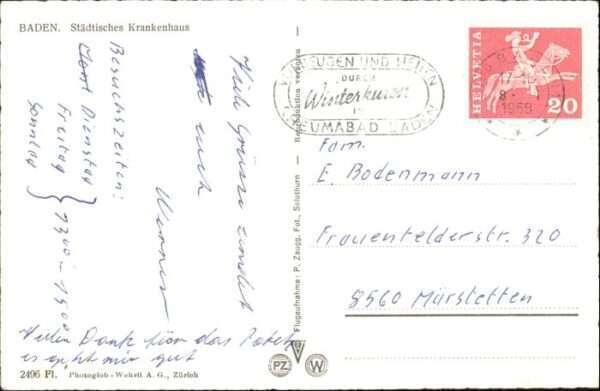 BADEN. Städtisches Krankenhaus
Viele Grüsse sendet
euch
Werner
Besuchszeiten:
Dienstag
Freitag
Sonntag
13 00 - 15 00
Vielen Dank für das Paket
es geht mir gut
2496 Fl. Photoglob-Wehrli A. G., Zürich
Flugaufnahme: P. Zaugg, Fot., Solothurn – Reproduktion verboten
PZ W
VORBEUGEN UND HEILEN
DURCH
Winterkuren
IM
RHEUMABAD BADEN
1969
HELVETIA
20
Fam.
E. Bodenmann
Frauenfelderstr. 320
8560 Märstetten